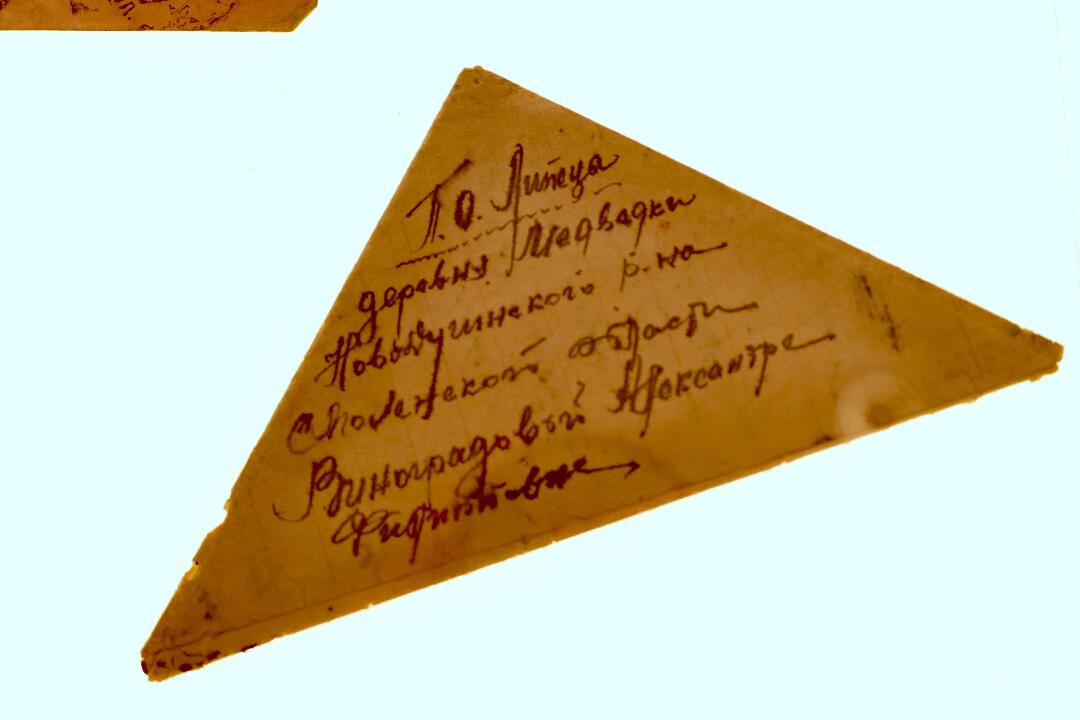 П.О. Липецы
деревня Медведки
Новодугинского р-на
Смоленской области
Виноградовой Александре
Филипповне